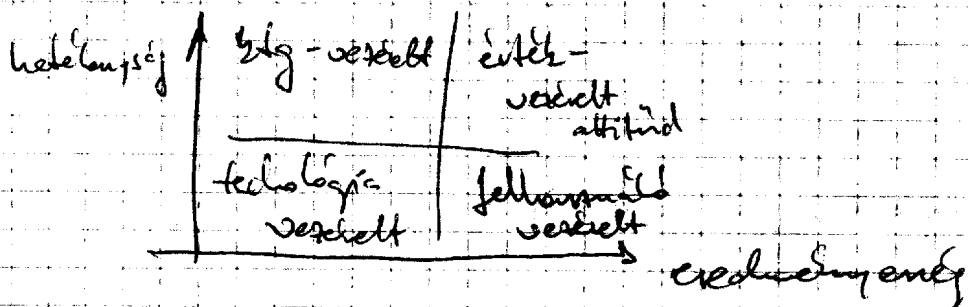 hatékonyság
ktg-vezérelt
érték-
vezérelt
attitűd
techológia
vezérelt
felhasználó
vezérelt
eredményesség